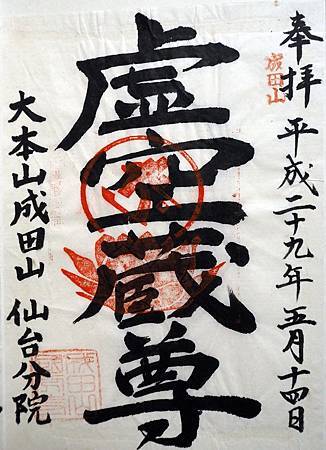 奉拝 平成二十九年五月十四日
成田山
虚空蔵尊
大本山成田山 仙台分院